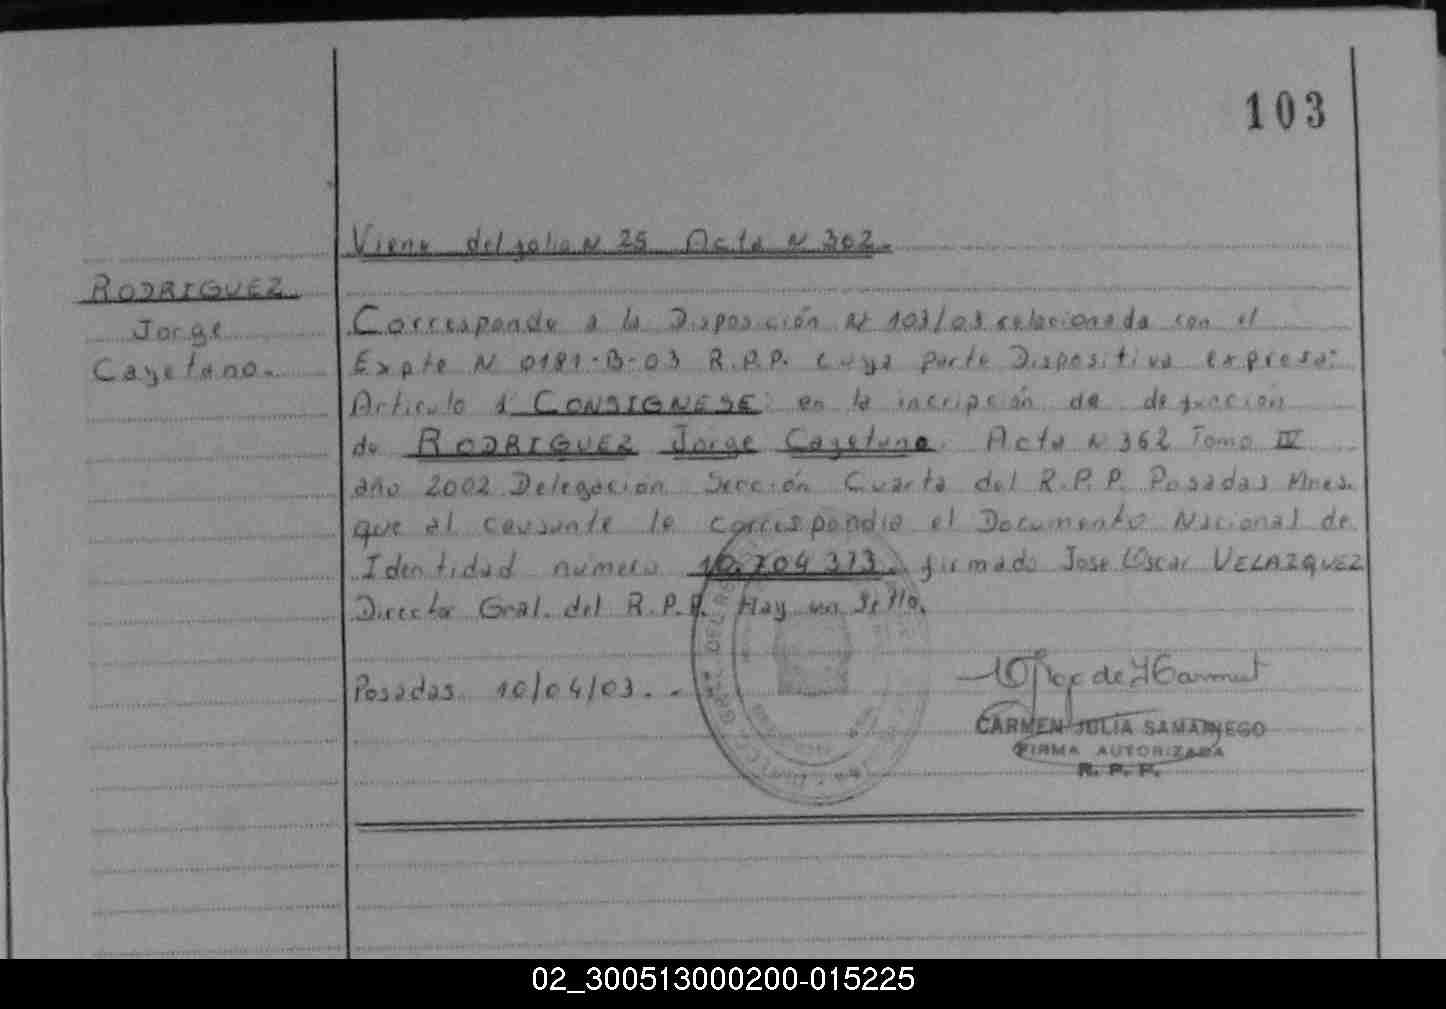 103
Viene del folio N 25 Acta N 362.
RODRIGUEZ
Jorge
Cayetano.-
Corresponde a la Disposición Nº 103/03 relacionada con el
Expte N 0181-B-03 R.P.P. cuya parte Dispositiva expresa:
Articulo 1º CONSIGNESE: en la incripción de defunción
de RODRIGUEZ Jorge Cayetano. Acta N 362 Tomo IV
año 2002 Delegación Sección Cuarta del R.P.P. Posadas Mnes.
que al causante le correspondio el Documento Nacional de
Identidad numero 10.704.373. firmado Jose Oscar VELAZQUEZ
Director Gral. del R.P.P. Hay un Sello.
Posadas 10/04/03.-
CARMEN JULIA SAMANIEGO
FIRMA AUTORIZADA
R. P. P.
02_300513000200-015225